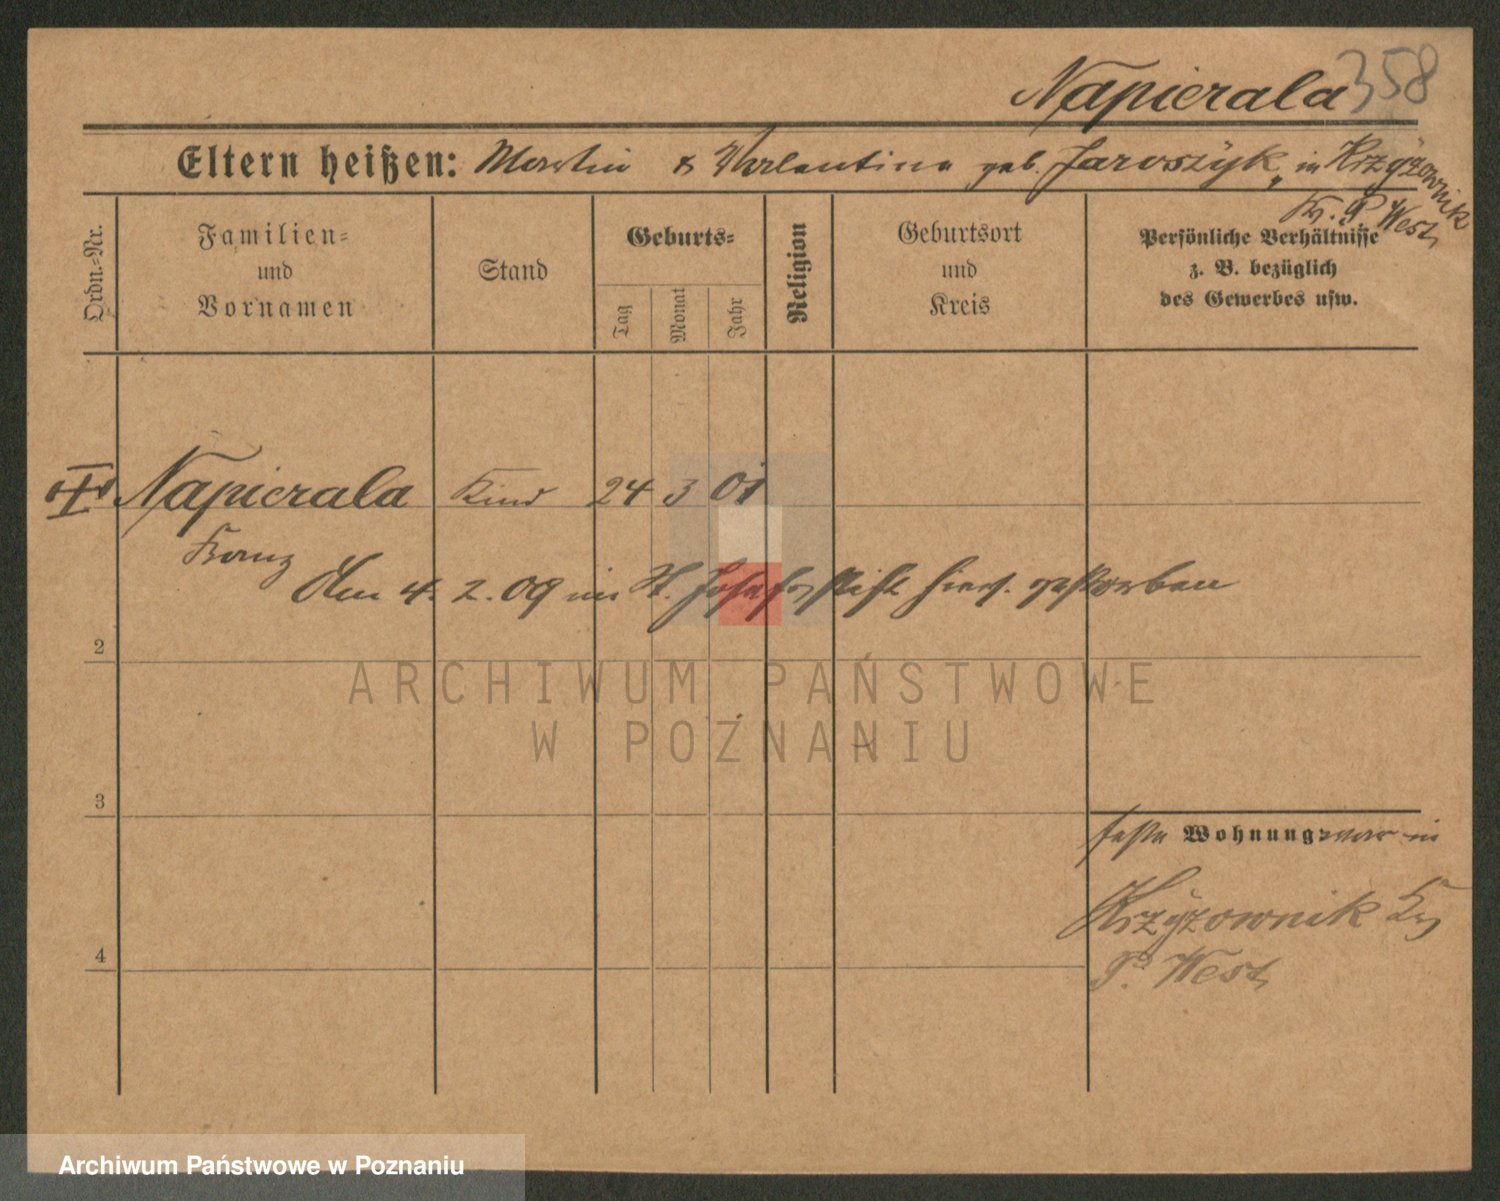 Napierala 358
Eltern heißen: Martin & Valentina geb. Jaroszyk, in Krzÿzownik
Kr. P. West,
Ordn.-Nr.
Familien-
und
Vornamen
Stand
Geburts-
Tag
Monat
Jahr
Religion
Geburtsort
und
Kreis
Persönliche Verhältnisse
z. B. bezüglich
des Gewerbes usw.
Napierala Kind 24 3 01
Franz
Am 4. 2. 09 im St. Josefsstift hies. gestorben
2
ARCHIWUM PAŃSTWOWE
W POZNANIU
3
feste Wohnung war in
Krzÿzownik Krs
P. West,
4
Archiwum Państwowe w Poznaniu